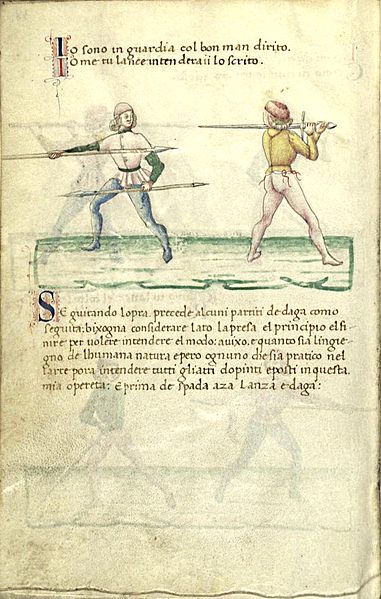 Io sono in guardia col bon man diriro.
To me tu lance intenderaii lo scrito.
SE guitando lopra, precede alcuni partiti de daga como
seguita; bixogna considerare lato la presa el principio elfi-
nire per volere intendere el modo; auixo, e quanto sia lingie-
gno de lhumana natura e pero ognuno che sia pratico nel
larte pora intendere tutti gli atti dopinti e posti in questa
mia opereta: E prima de spada aza Lanza e daga: